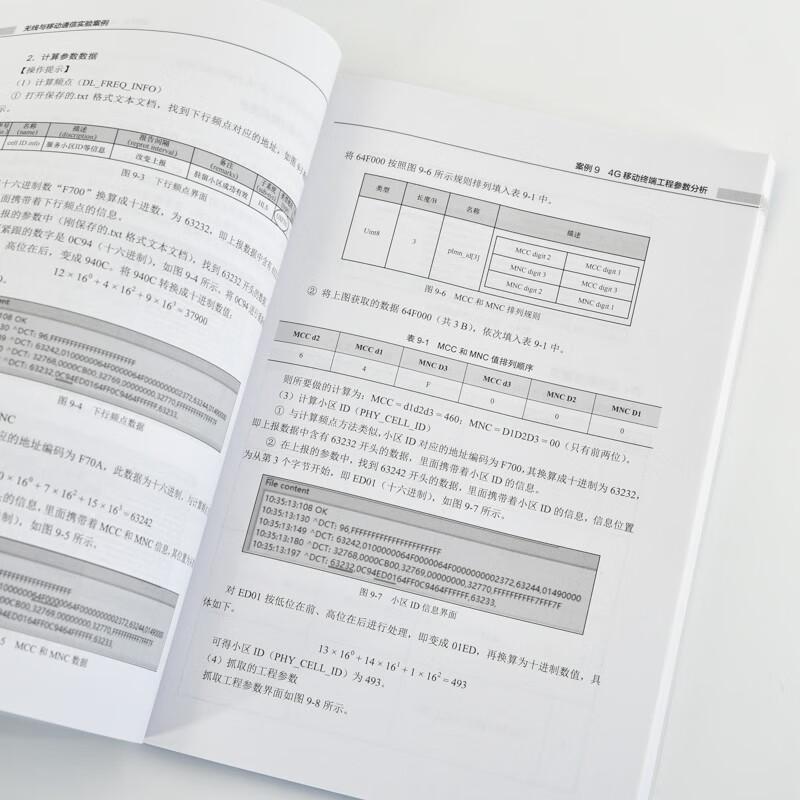 无线与移动通信实验案例
2．计算参数数据
【操作提示】
（1）计算频点（DL_FREQ_INFO）
① 打开保存的.txt 格式文本文档，找到下行频点对应的地址，如图
示。
名称
(name)
描述
(discription)
报告间隔
(report interval)
备注
(remarks)
cell ID info
服务小区ID等信息
改变上报
驻留小区成功有效
图 9-3　下行频点界面
十六进制数“F700”换算成十进数，为 63232，即上报数据中含有
面携带着下行频点的信息。
报的参数中（刚保存的.txt 格式文本文档），找到 63232 开头的数据，
紧跟的数字是 0C94（十六进制），如图 9-4 所示。将 0C94
高位在后，变成 940C。将 940C 转换成十进制数值：
12 × 16⁰ + 4 × 16¹ + 9 × 16³ = 37900
ntent
108 OK
^DCT: 96,FFFFFFFFFFFFFFFFFFFFFF
^DCT: 63242,0100000064F0000064F0000000002372,63244,01490000
^DCT: 32768,0000CB00,32769,00000000,32770,FFFFFFFFFF7FFF7F
63232,0C94ED0164FF0C9464FFFFFF,63233,
图 9-4　下行频点数据
NC
应的地址编码为 F70A，此数据为十六进制，与计算
× 16⁰ + 7 × 16² + 15 × 16³ = 63242
的信息，里面携带着 MCC 和 MNC 信息，
制），如图 9-5 所示。
MCC 和 MNC 数据
案例 9　4G 移动终端工程参数分析
将 64F000 按照图 9-6 所示规则排列填入表 9-1 中。
类型
长度/B
名称
描述
Uint8
3
plmn_id[3]
MCC digit 2
MCC digit 1
MNC digit 3
MCC digit 3
MNC digit 2
MNC digit 1
图 9-6　MCC 和 MNC 排列规则
② 将上图获取的数据 64F000（共 3 B），依次填入表 9-1 中。
表 9-1　MCC 和 MNC 值排列顺序
MCC d2
MCC d1
MNC D3
MCC d3
MNC D2
MNC D1
6
4
F
0
0
0
则所要做的计算为：MCC = d1d2d3 = 460；MNC = D1D2D3 = 00（只有前两位）。
（3）计算小区 ID（PHY_CELL_ID）
① 与计算频点方法类似，小区 ID 对应的地址编码为 F700，其换算成十进制为 63232，
即上报数据中含有 63232 开头的数据，里面携带着小区 ID 的信息。
② 在上报的参数中，找到 63242 开头的数据，里面携带着小区 ID 的信息，信息位置
为从第 3 个字节开始，即 ED01（十六进制），如图 9-7 所示。
File content
10:35:13:108 OK
10:35:13:130 ^DCT: 96,FFFFFFFFFFFFFFFFFFFFFF
10:35:13:149 ^DCT: 63242,0100000064F0000064F0000000002372,63244,01490000
10:35:13:180 ^DCT: 32768,0000CB00,32769,00000000,32770,FFFFFFFFFF7FFF7F
10:35:13:197 ^DCT: 63232,0C94ED0164FF0C9464FFFFFF,63233,
图 9-7　小区 ID 信息界面
对 ED01 按低位在前、高位在后进行处理，即变成 01ED，再换算为十进制数值，具
体如下。
13 × 16⁰ + 14 × 16¹ + 1 × 16² = 493
可得小区 ID（PHY_CELL_ID）为 493。
（4）抓取的工程参数
抓取工程参数界面如图 9-8 所示。